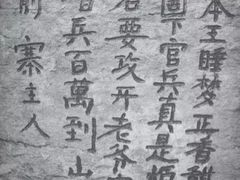 本王睡梦正香甜
團下官兵真是煩
若要攻开老爷
首兵百萬到山
前 寨主人